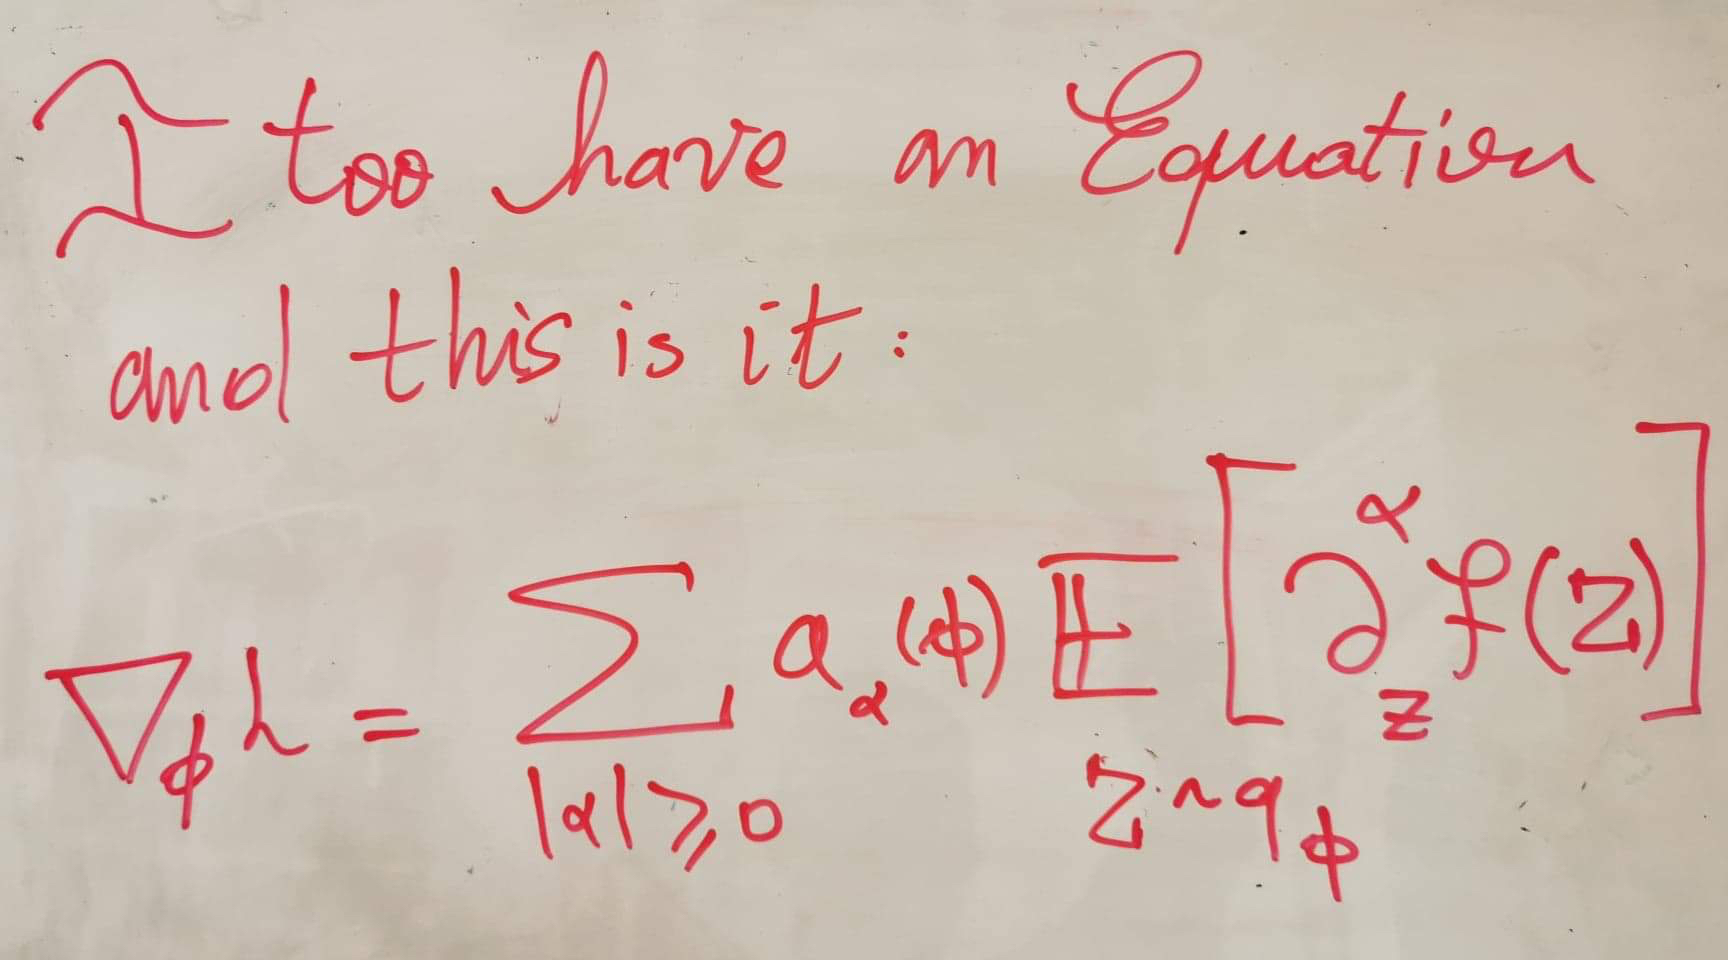 I too have an Equation
and this is it:
∇_ϕ h = ∑_{|α|⩾0} a_α(ϕ) 𝔼_{Z~q_ϕ} [∂_z^α f(Z)]